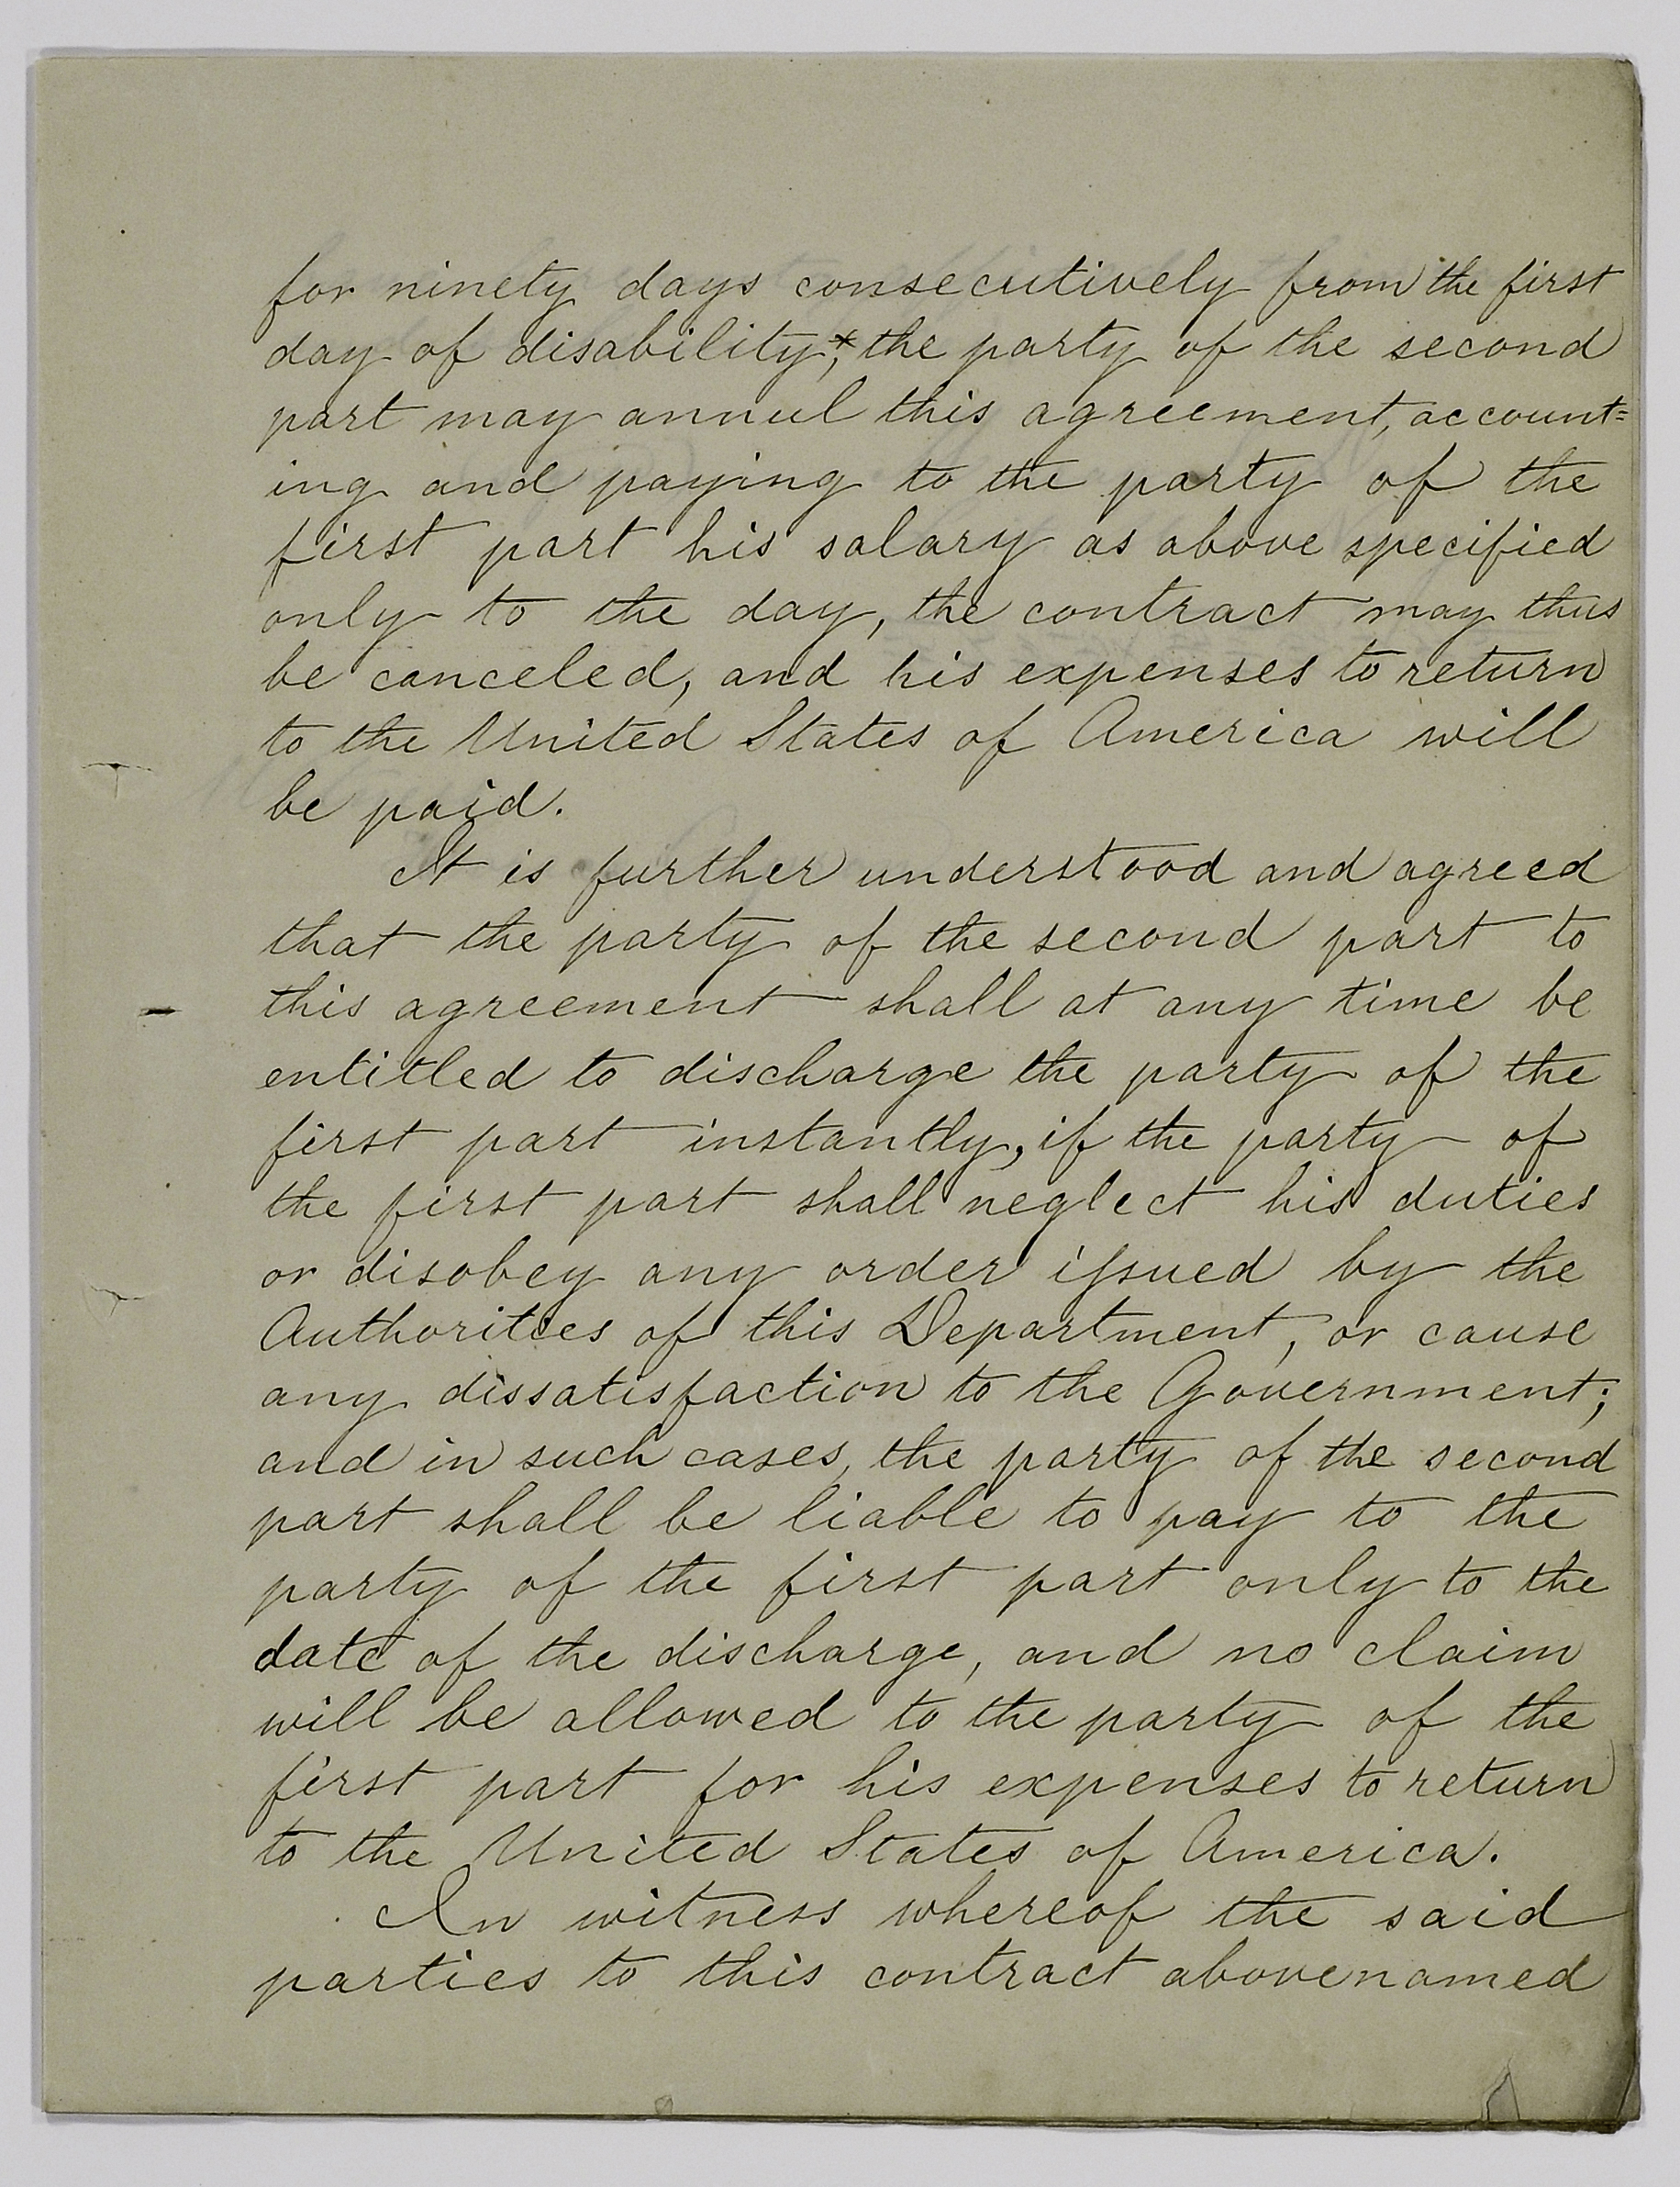 for ninety days consecutively from the first
day of disability,* the party of the second
part may annul this agreement, account=
ing and paying to the party of the
first part his salary as above specified
only to the day, the contract may thus
be canceled, and his expenses to return
to the United States of America will
be paid.
It is further understood and agreed
that the party of the second part to
this agreement shall at any time be
entitled to discharge the party of the
first part instantly, if the party of
the first part shall neglect his duties
or disobey any order issued by the
Authorities of this Department, or cause
any dissatisfaction to the Government;
and in such cases, the party of the second
part shall be liable to pay to the
party of the first part only to the
date of the discharge, and no claim
will be allowed to the party of the
first part for his expenses to return
to the United States of America.
In witness whereof the said
parties to this contract abovenamed